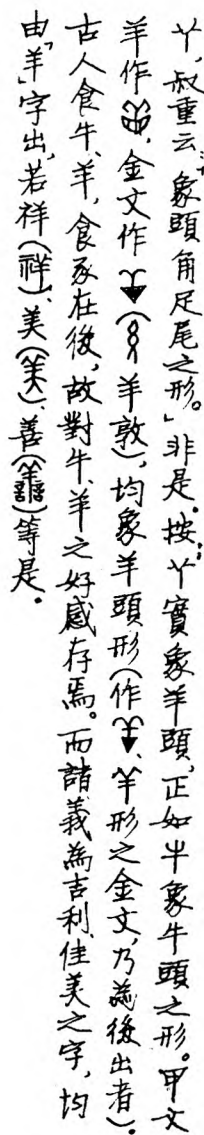 丫，叔重云：「象頭角足尾之形。」非是。按：丫實象羊頭，正如半象牛頭之形。甲文
羊作，金文作（羊敦），均象羊頭形（作、羊形之金文，乃為後出者）。
古人食牛、羊，食豕在後，故對牛、羊之好感存焉。而諸義為吉利、佳美之字，均
由「羊」字出，若祥（祥）、美（美）、善（譱）等是。